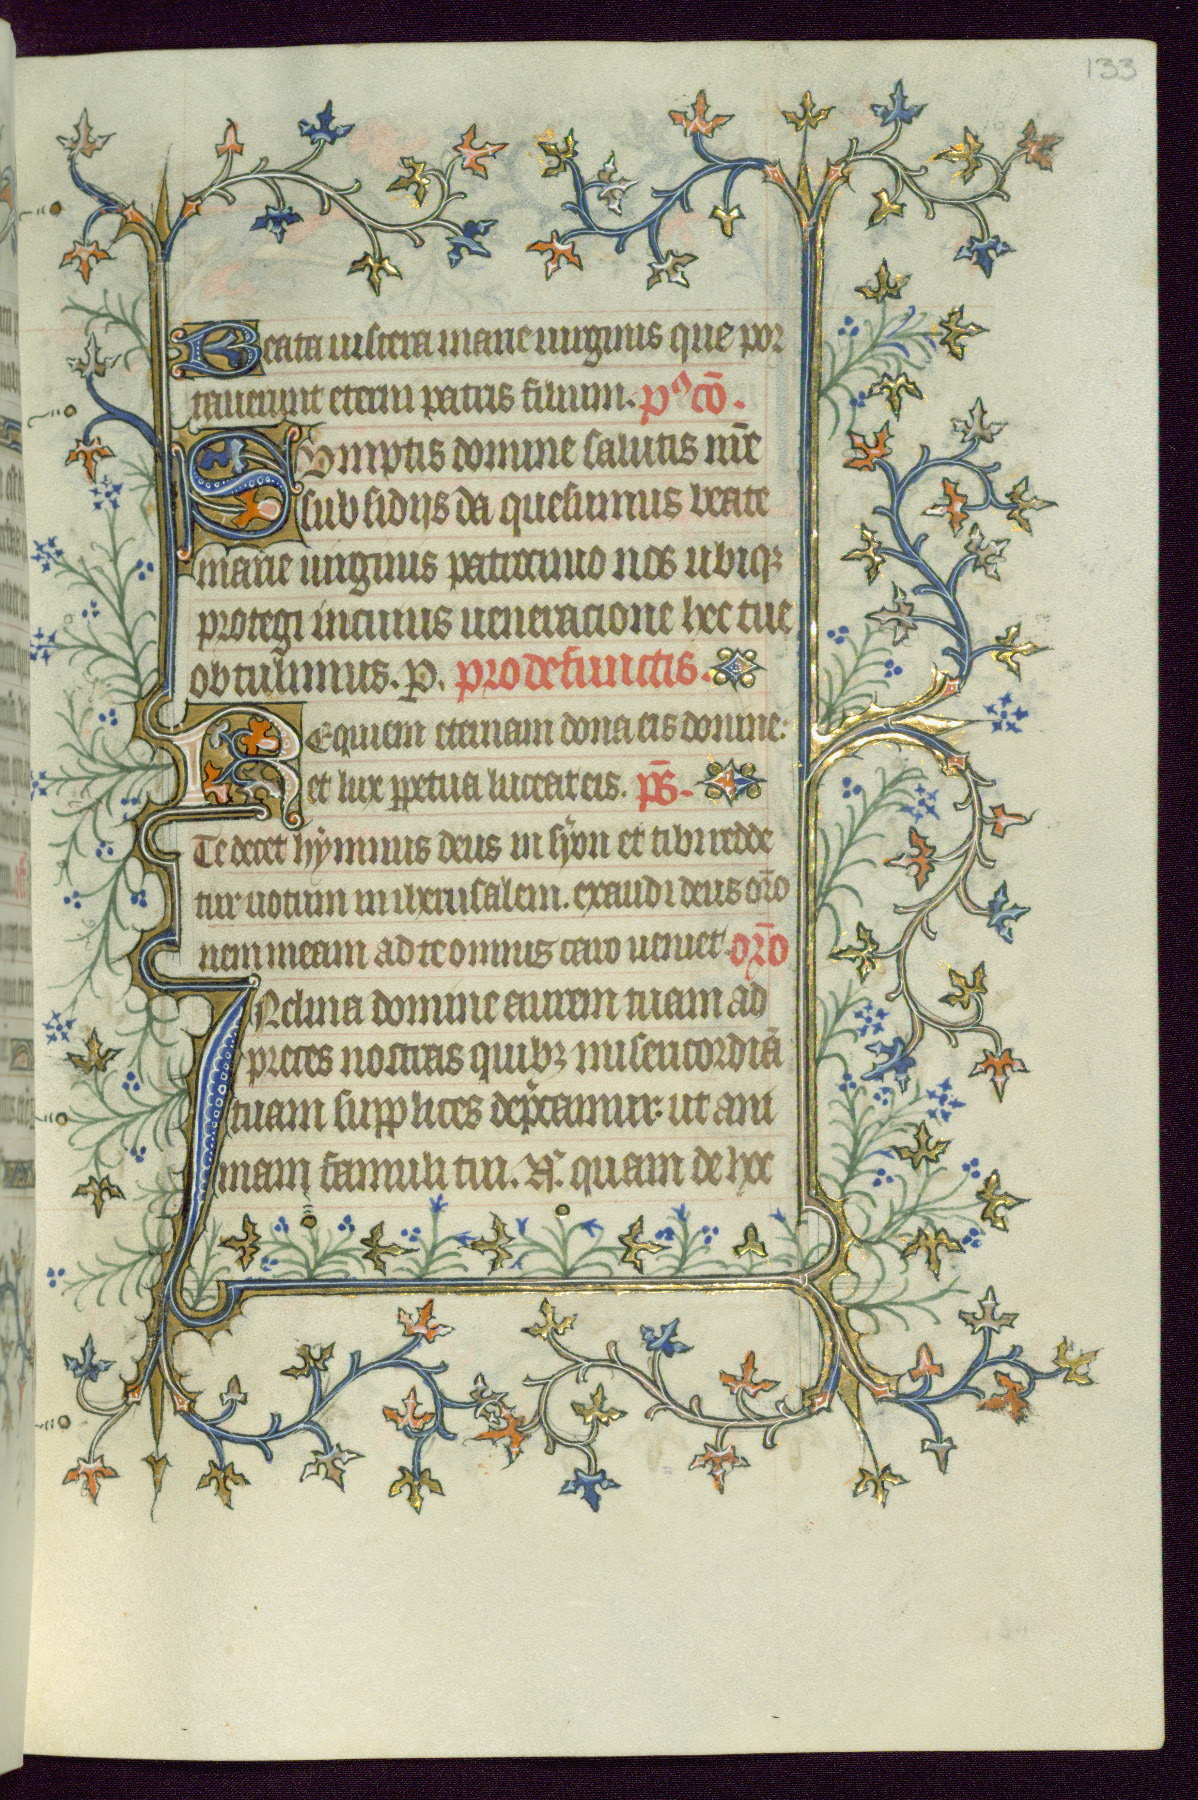 133
Beata uiscera marie uirginis que por
tauerunt eterni patris filium. p° cō.
Sumptis domine salutis nr̄e
subsidijs da quesumus beate
marie uirginis patrocinio nos ubiqꝫ
protegi in cuius ueneracione hec tue
obtulimus. p. pro defunctis.
Requiem eternam dona eis domine:
et lux ꝑpetua luceat eis. p̄s.
Te decet hymnus deus in syon et tibi redde
tur uotum in iherusalem. exaudi deus oro
nem meam ad te omnis caro ueniet. oro
Inclina domine aurem tuam ad
preces nostras quibꝫ misericordiā
tuam supplices dep̄camur: ut ani
mam famuli tui. N. quam de hoc